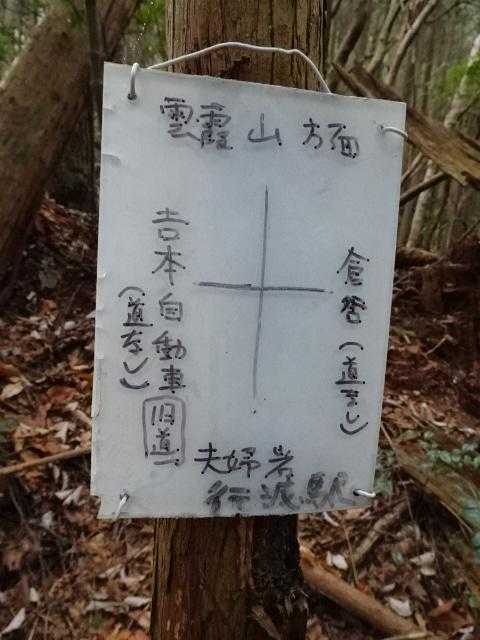 雲霞山方面
倉宕(道なし)
𠮷本自動車
(道なし)
旧道
夫婦岩
行波駅